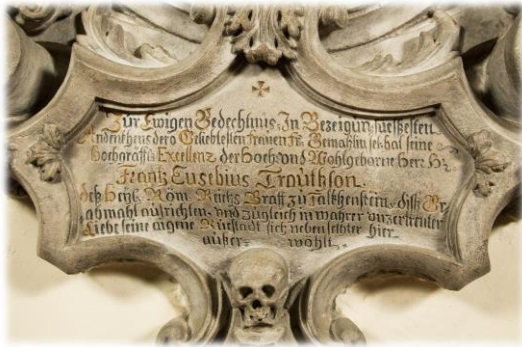 Zur Ewigen Gedechtnus, In Bezeigung
Andenkhens dero Geliebtesten Frauen Gemahlin sel. hat seine
Hochgräffl. Excellenz der Hoch und Wohlgeborne Herr H.
Frantz Eusebius Trauthson
deß Heyl. Röm. Reichs Graff zu Falkhenstein, diß Gr
abmahl aufrichten, und zugleich in wahrer unzertrenter
Liebe seine eigene Ruestadt sich neben selbter hier
außer wöhlt.